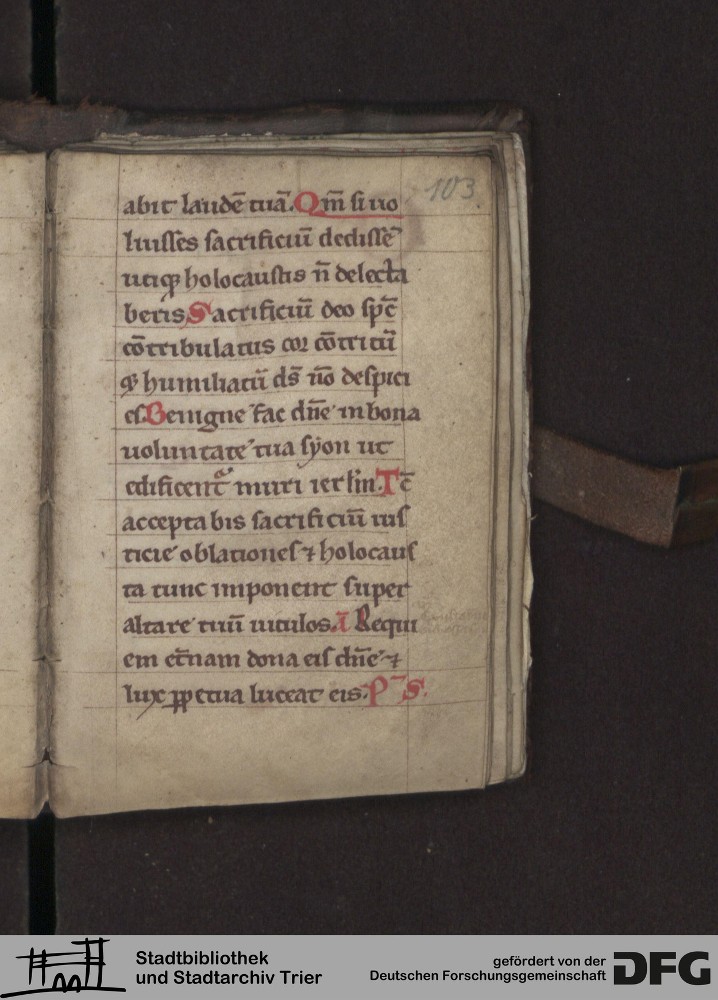 103
abit laudē tuā. Qm̄ si uo
luisses sacrificiū dedissē
utiqꝫ holocaustis n̄ delecta
beris. Sacrificiū deo sp̄c
cōtribulatus coꝛ cōtritū
qꝫ humiliatū ds̄ n̄o despici
es. Benigne fac dn̄e in bona
uoluntate tua syon ut
edificentᷓ muri ierl̄m. Tc̄
acceptabis sacrificiū ius
ticie oblationes ⁊ holocaus
ta tunc imponent super
altare tuū uitulos. ā Requi
em et̄nam dona eis dn̄e ⁊
lux ꝑpetua luceat eis. P̄ S.
Stadtbibliothek
und Stadtarchiv Trier
gefördert von der
Deutschen Forschungsgemeinschaft
DFG